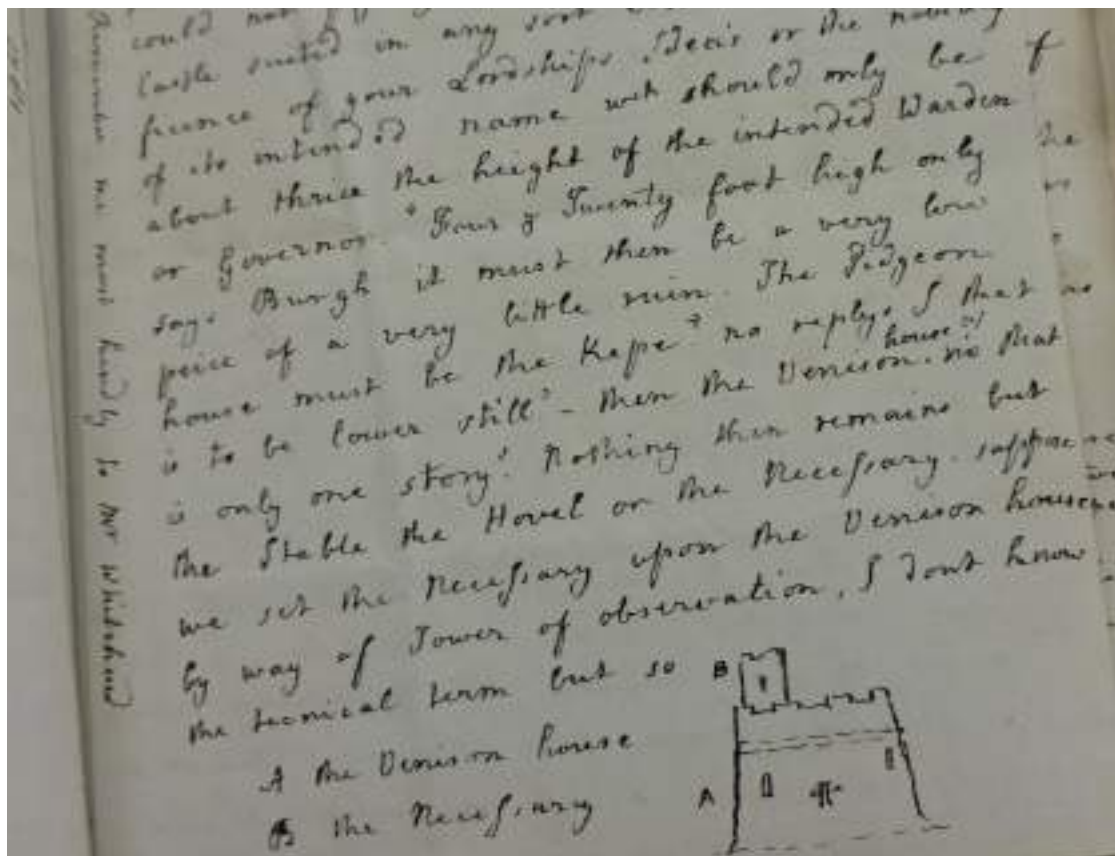 could not
Castle suited in any sort
ficence of your Lordships Ideas or the nobility
of its intended name wch should only be
about thrice the height of the intended Warden
or Governor. "Four & Twenty foot high only
says Burgh it must then be a very low
peice of a very little ruin. The Pidgeon
house must be the Kepe" no replys I that
is to be lower still" - then the Venison house" no that
is only one story! Nothing then remains but
the Stable the Hovel or the Necessary. suppose
we set the Necessary upon the Venison house
by way of Tower of observation, I dont know
the tecnical term but so
A the Venison house
B the Necessary
B
A
me most kindly to Mr Whithed